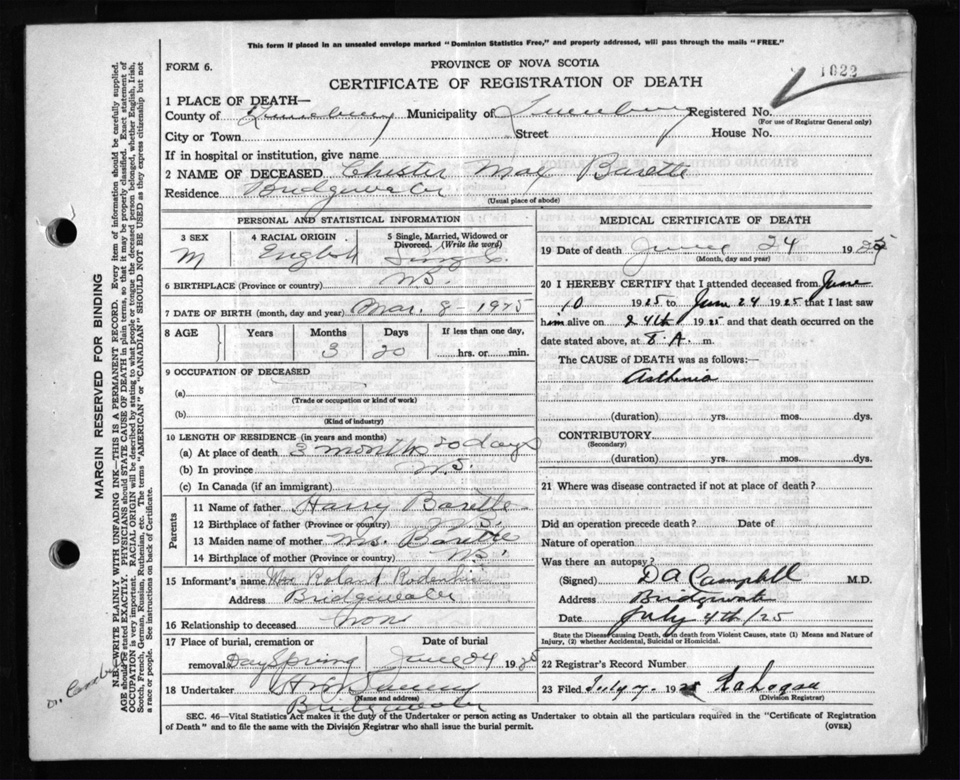 This form if placed in an unsealed envelope marked "Dominion Statistics Free," and properly addressed, will pass through the mails "FREE."
FORM 6.
PROVINCE OF NOVA SCOTIA
1022
CERTIFICATE OF REGISTRATION OF DEATH
1 PLACE OF DEATH—
County of Lunenburg Municipality of Lunenburg Registered No.
(For use of Registrar General only)
City or Town Street House No.
If in hospital or institution, give name
2 NAME OF DECEASED Chester Max Barette
Residence Bridgewater
(Usual place of abode)
PERSONAL AND STATISTICAL INFORMATION
3 SEX 4 RACIAL ORIGIN 5 Single, Married, Widowed or Divorced. (Write the word)
M English Single
6 BIRTHPLACE (Province or country) N.S.
7 DATE OF BIRTH (month, day and year) Mar. 8 - 1925
8 AGE Years Months Days If less than one day,
3 20 hrs. or min.
9 OCCUPATION OF DECEASED
(a)
(Trade or occupation or kind of work)
(b)
(Kind of industry)
10 LENGTH OF RESIDENCE (in years and months)
(a) At place of death 3 months 20 days
(b) In province N.S.
(c) In Canada (if an immigrant)
Parents
11 Name of father Harry Barette
12 Birthplace of father (Province or country) N.S.
13 Maiden name of mother Ms. Barette
14 Birthplace of mother (Province or country) N.S.
15 Informant's name Mrs Roland
Address Bridgewater
16 Relationship to deceased none
17 Place of burial, cremation or removal Date of burial
DaySpring June 24 19
18 Undertaker
(Name and address)
Bridgewater
MEDICAL CERTIFICATE OF DEATH
19 Date of death June 24 1925
(Month, day and year)
20 I HEREBY CERTIFY that I attended deceased from June
10 1925 to June 24 1925 that I last saw
him alive on 24th 1925 and that death occurred on the
date stated above, at 8.A. m.
The CAUSE OF DEATH was as follows:—
Asthenia
(duration) yrs. mos. dys.
CONTRIBUTORY
(Secondary)
(duration) yrs. mos. dys.
21 Where was disease contracted if not at place of death?
Did an operation precede death? Date of
Nature of operation
Was there an autopsy?
(Signed) D A Campbell M.D.
Address Bridgewater
Date July 4th/25
State the Disease causing Death, or in death from Violent Causes, state (1) Means and Nature of Injury, (2) whether Accidental, Suicidal or Homicidal.
22 Registrar's Record Number
23 Filed July 7 1925
(Division Registrar)
SEC. 46—Vital Statistics Act makes it the duty of the Undertaker or person acting as Undertaker to obtain all the particulars required in the "Certificate of Registration
of Death" and to file the same with the Division Registrar who shall issue the burial permit. (OVER)
MARGIN RESERVED FOR BINDING
N.B.—WRITE PLAINLY WITH UNFADING INK—THIS IS A PERMANENT RECORD. Every item of information should be carefully supplied.
AGE should be stated EXACTLY. PHYSICIANS should STATE CAUSE OF DEATH in plain terms, so that it may be properly classified. Exact statement of
OCCUPATION is very important. RACIAL ORIGIN will be described by stating to what people or tongue the deceased person belonged, whether English, Irish,
Scotch, French, German, Russian, Ruthenian, etc. The terms "AMERICAN" or "CANADIAN" SHOULD NOT BE USED as they express citizenship but not
a race or people. See instructions on back of Certificate.